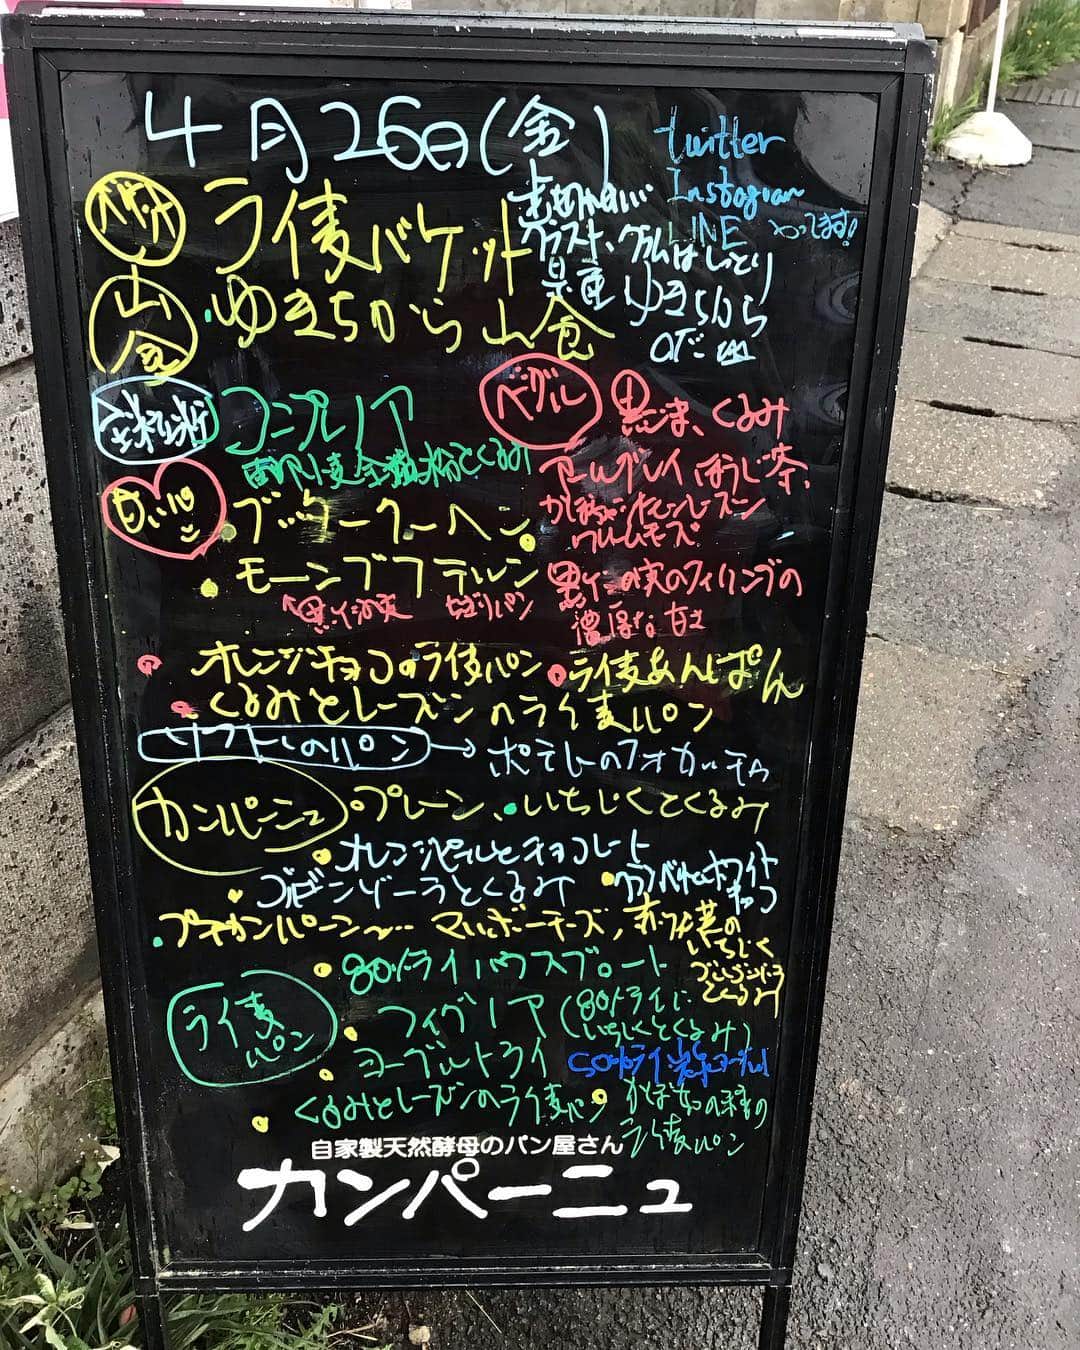 4月26日(金)
twitter
Instagram
LINE やってます!
ライ麦バケット
山食
・ゆきちから山食
はしっとり
県産ゆきちから
コンプレノア
全粒粉とくるみ
ベーグル
黒ごま、くるみ
アールグレイ ほうじ茶、
クリームチーズ
甘いパン
ブッタークーヘン
モーンプフテルン
黒ケシの実のフィリングの
濃厚な甘さ
オレンジチョコのライ麦パン
ライ麦あんぱん
くるみとレーズンのライ麦パン
ソフトのパン → ポテトのフォカッチャ
カンパーニュ
プレーン、いちじくとくるみ
オレンジピールとチョコレート
ゴルゴンゾーラとくるみ
ホワイト
チョコ
プチカンパーニュ
チーズ,
いちじく
ゴルゴンゾーラ
とくるみ
ライ麦パン
80%ライ ハウスブロート
フィグノア (80%ライに
いちじくとくるみ)
ヨーグルトライ
くるみとレーズンのライ麦パン
かぼちゃの種の
ライ麦パン
自家製天然酵母のパン屋さん
カンパーニュ